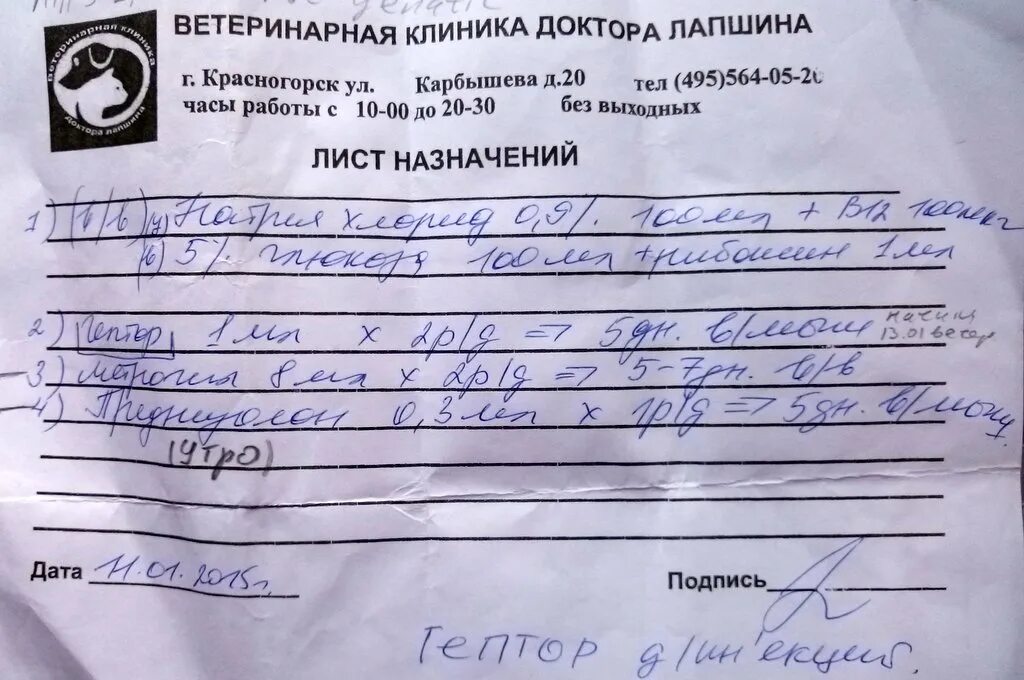 делать
ВЕТЕРИНАРНАЯ КЛИНИКА ДОКТОРА ЛАПШИНА
Ветеринарная клиника
Доктора Лапшина
г. Красногорск ул. Карбышева д.20 тел (495)564-05-26
часы работы с 10-00 до 20-30 без выходных
ЛИСТ НАЗНАЧЕНИЙ
1) (в/в) у) Натрия хлорид 0,9%. 100мл + B12 100мкг
в) 5% глюкоза 100мл + рибоксин 1мл
2) Гептор 1мл х 2р/д => 5дн. в/мышц начиная 13.01 вечер
3) Метрогил 8мл х 2р/д => 5-7дн. в/в
4) Преднизолон 0,3мл х 1р/д => 5дн. в/мышц
(Утро)
Дата 11.01.2015г. Подпись
Гептор д/ин'екций.